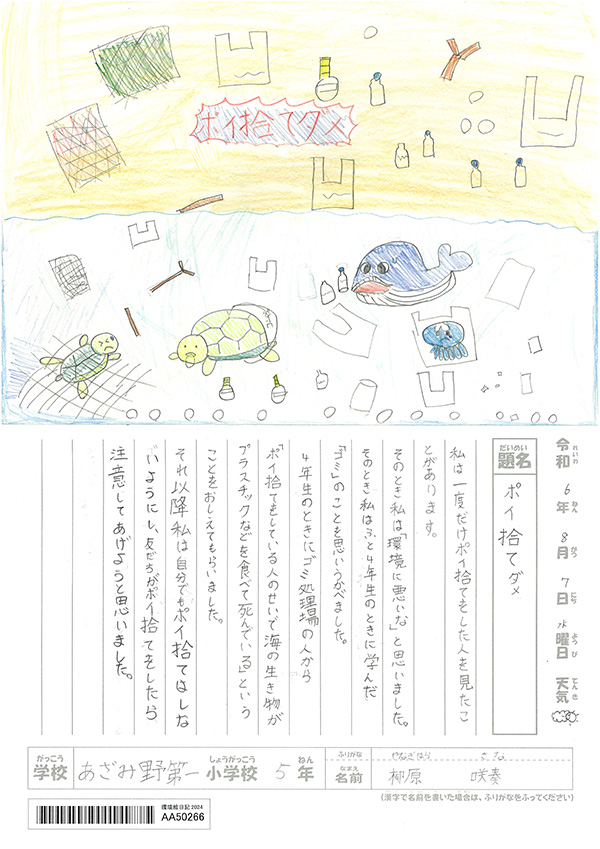 ポイ捨てダメ
令和6年8月7日水曜日 天気
れいわ ねん がつ にち ようび てんき
だいめい
題名
ポイ捨てダメ
私は一度だけポイ捨てをした人を見たこ
とがあります。
そのとき私は「環境に悪いな」と思いました。
そのとき私はふと4年生のときに学んだ
「ゴミ」のことを思いうかべました。
4年生のときにゴミ処理場の人から
「ポイ捨てをしている人のせいで海の生き物が
プラスチックなどを食べて死んでいる」という
ことをおしえてもらいました。
それ以降私は自分でもポイ捨てはしな
いようにし、友だちがポイ捨てをしたら
注意してあげようと思いました。
がっこう しょうがっこう ねん
学校 あざみ野第一小学校 5年
ふりがな やなぎはら さな
なまえ
名前 柳原 咲奏
(漢字で名前を書いた場合は、ふりがなをふってください)
環境絵日記 2024
AA50266